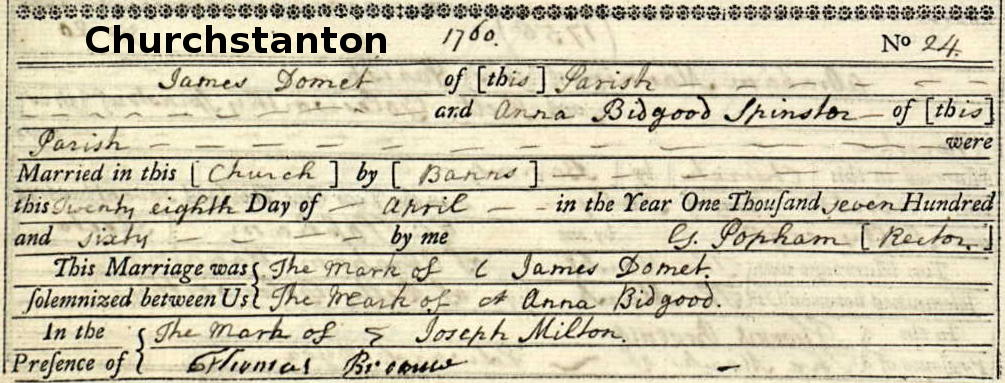 Churchstanton
1760.
No 24.
James Domet of [this] Parish
and Anna Bidgood Spinster of [this]
Parish were
Married in this [Church] by [Banns]
this Twenty eighth Day of April in the Year One Thouſand seven Hundred
and sixty by me G. Popham [Rector.]
This Marriage was { The Mark of James Domet.
ſolemnized between Us { The Mark of Anna Bidgood.
In the { The Mark of Joseph Milton.
Preſence of { Thomas